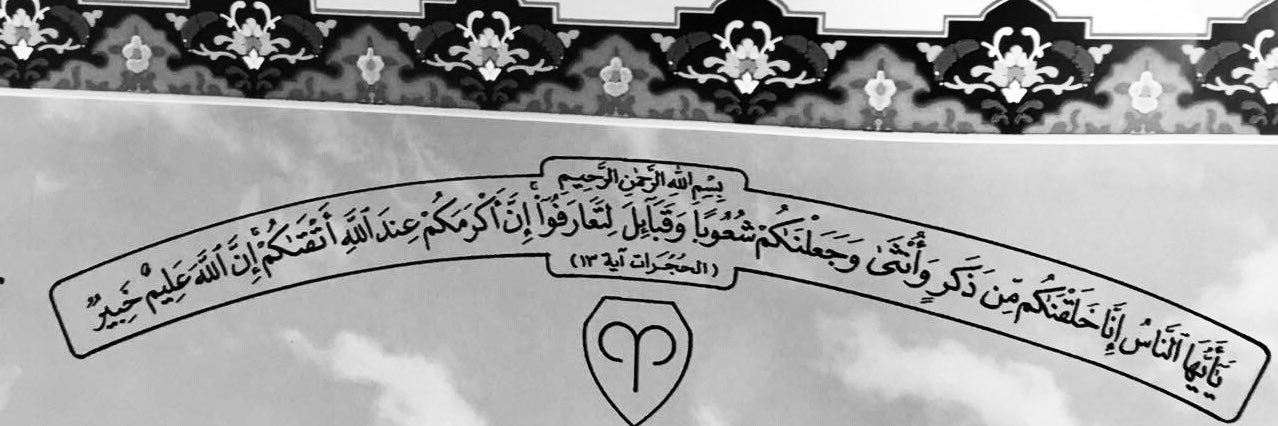 بِسْمِ اللهِ الرَّحْمٰنِ الرَّحِيمِ
يَٰٓأَيُّهَا ٱلنَّاسُ إِنَّا خَلَقْنَٰكُم مِّن ذَكَرٍ وَأُنثَىٰ وَجَعَلْنَٰكُمْ شُعُوبًا وَقَبَآئِلَ لِتَعَارَفُوٓا۟ ۚ إِنَّ أَكْرَمَكُمْ عِندَ ٱللَّهِ أَتْقَىٰكُمْ ۚ إِنَّ ٱللَّهَ عَلِيمٌ خَبِيرٌ
(الحُجُرَات آية ١٣)